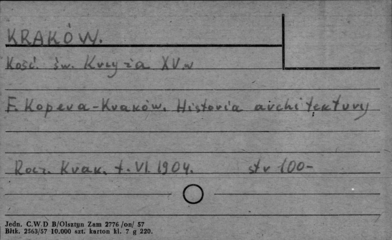 KRAKÓW.
Kość. Św. Krzyża XV w
F. Kopera-Kraków. Historia architektury
Rocz. Krak. t. VI. 1904. str 100-
Jedn. C.W D B/Olsztyn Zam 2776 /on/ 57
Bltk. 2563/57 10.000 szt. karton kl. 7 g 220.